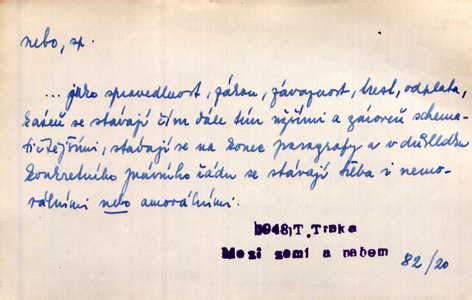 nebo, sp.
... jako spravedlnost, zákon, závaznost, trest, odplata,
kázeň se stávají čím dále tím užšími a zároveň schema-
tičtějšími, stávají se na konec paragrafy a v důsledku
konkretního právního řádu se stávají třeba i nemo-
rálními nebo amorálními.
1948, T. Trnka
Mezi zemí a nebem
82/20